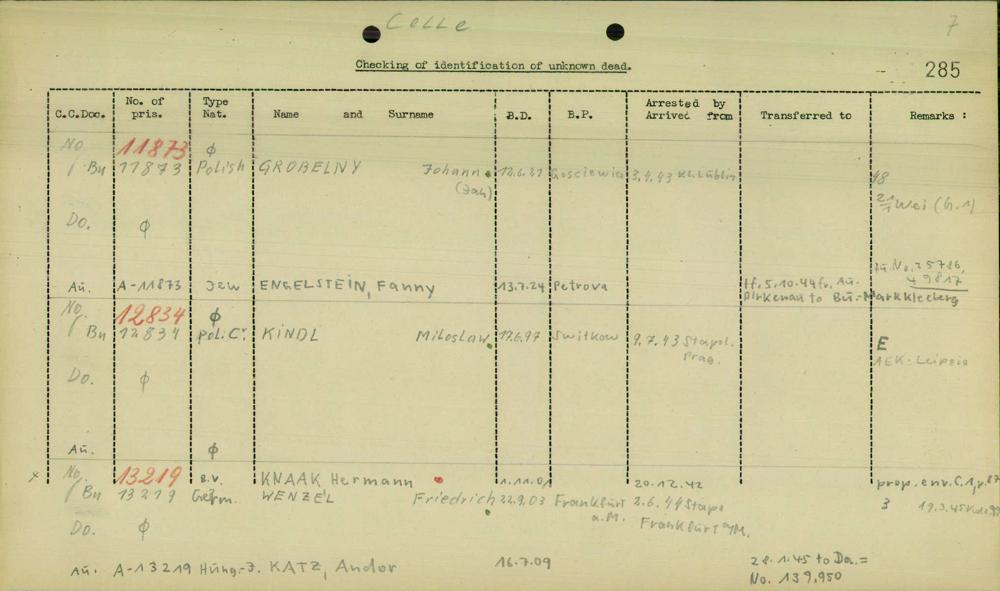 Celle 7
Checking of identification of unknown dead.
285
C.C.Doc. No. of pris. Type Nat. Name and Surname B.D. B.P. Arrested by Arrived from Transferred to Remarks :
No. 11873 ϕ
Bu 11873 Polish GROBELNY Johann 12.6.21 Gosciewice 3.4.43 Kl. Lublin 48
(Jan) Wei (G.1)
Do. ϕ
Au. No. 25786,
Au. A-11873 Jew ENGELSTEIN, Fanny 13.7.24 Petrova tf. 5.10.44 fr. Au. 49817
Birkenau to Bu.-Markkleeberg
No. 12834 ϕ
Bu 12834 Pol. C. KINDL Miloslaw 17.6.97 Switkow 9.7.43 Stapol. E
Prag. AEK-Leipzig
Do. ϕ
Au. ϕ
x No. 13219 s.v. KNAAK Hermann 1.11.01 20.12.42 prop. env. C.1, p. 87
Bu 13219 Germ. WENZEL Friedrich 22.9.03 Frankfurt 2.6.44 Stapo 3 19.3.45
a.M. Frankfurt a/M.
Do. ϕ
Au. A-13219 Hung-J. KATZ, Andor 16.7.09 28.1.45 to Da.=
No. 139,950